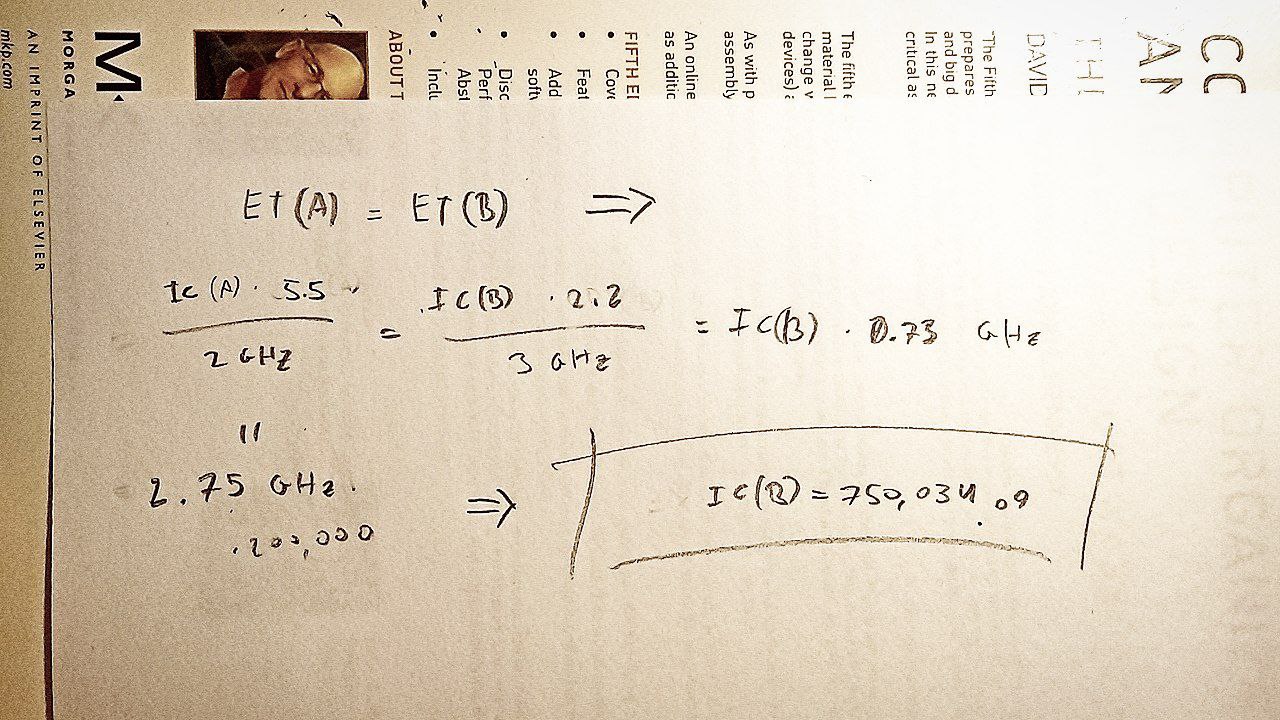 CC
AN
THI
DAVID
"The Fifth
prepares
and big d
In this ne
critical as
The fifth e
material l
change v
devices) a
As with p
assembly
An online
as additic
FIFTH EI
• Cove
• Feat
• Add
soft
• Disc
Perf
Abst
• Inclu
ABOUT T
M
MORGA
AN IMPRINT OF ELSEVIER
mkp.com
ET(A) = ET(B) ⇒
IC(A) · 5.5 / 2 GHz = IC(B) · 2.2 / 3 GHz = IC(B) · 0.73 GHz
||
2.75 GHz
· 200,000
⇒ IC(B) = 750,034.09